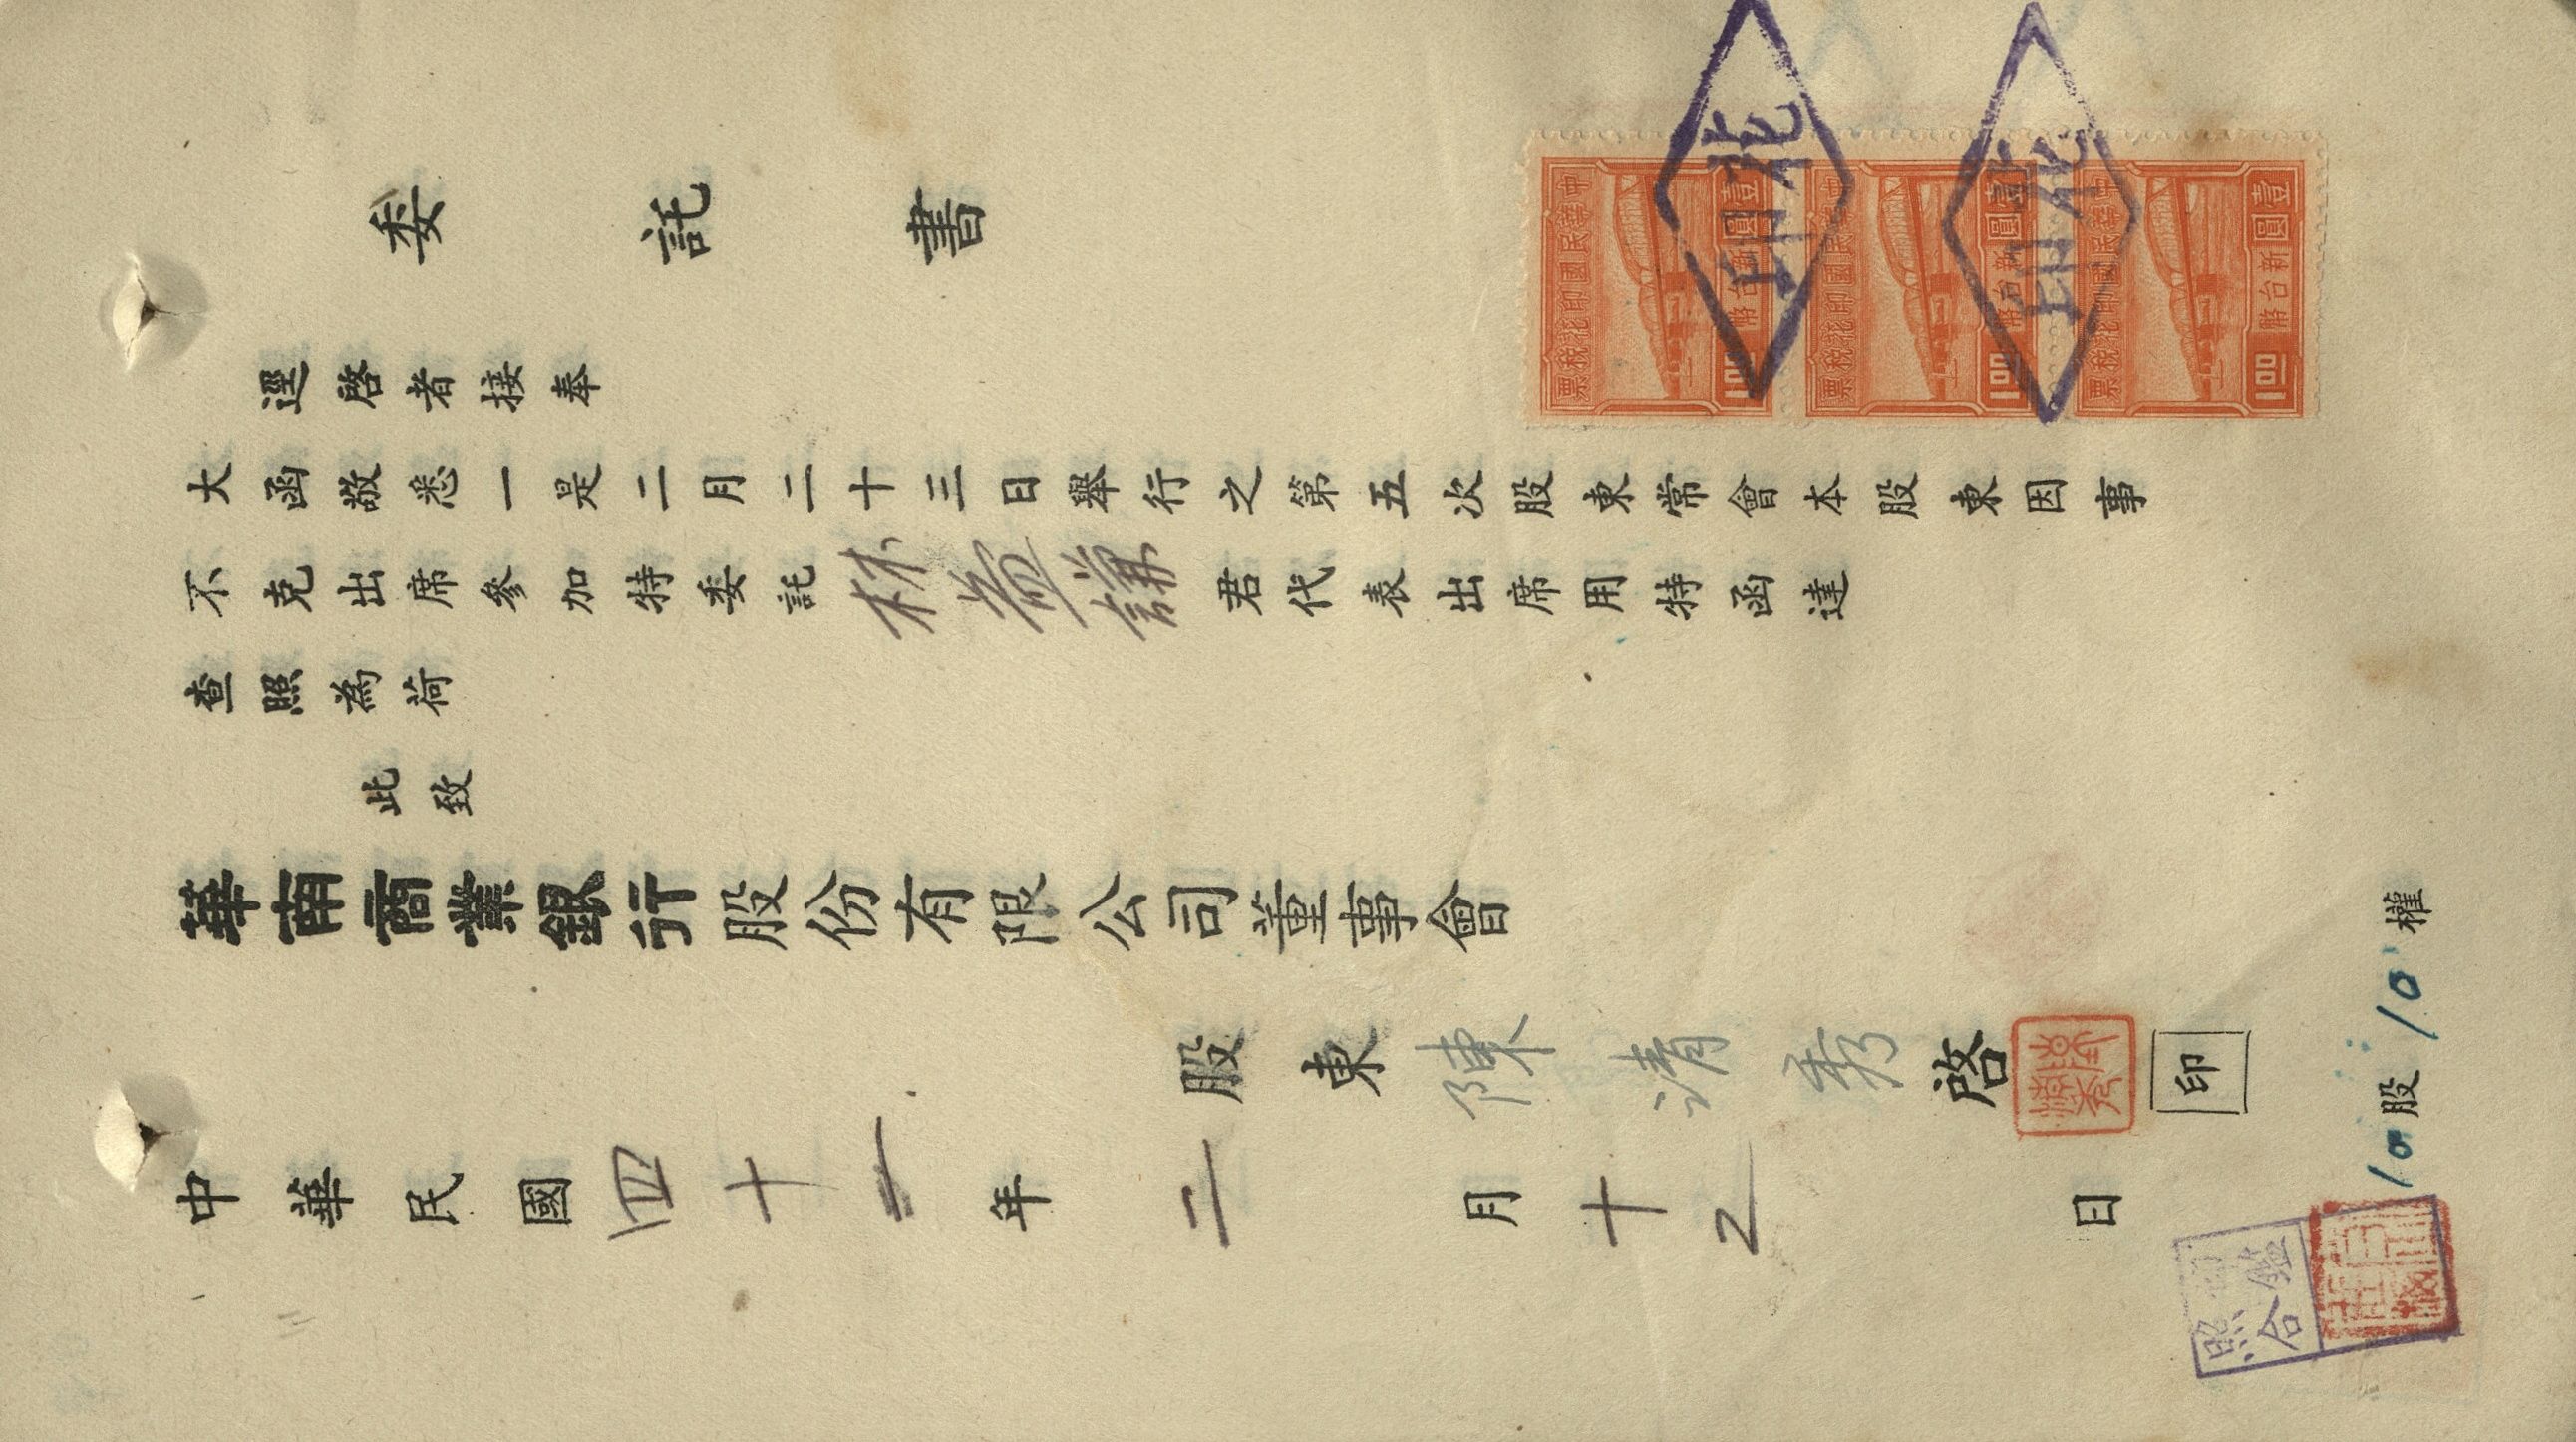 委託書
逕啓者接奉
大函敬悉一是二月二十三日舉行之第五次股東常會本股東因事
不克出席參加特委託林壺謙君代表出席用特函達
查照為荷
此致
華南商業銀行股份有限公司董事會
股東 陳清秀 啓 印
中華民國四十一年二月十2日
100股10權
中華民國印花稅票
壹圓
新台幣
1.00
中華民國印花稅票
壹圓
新台幣
1.00
中華民國印花稅票
壹圓
新台幣
1.00
照合